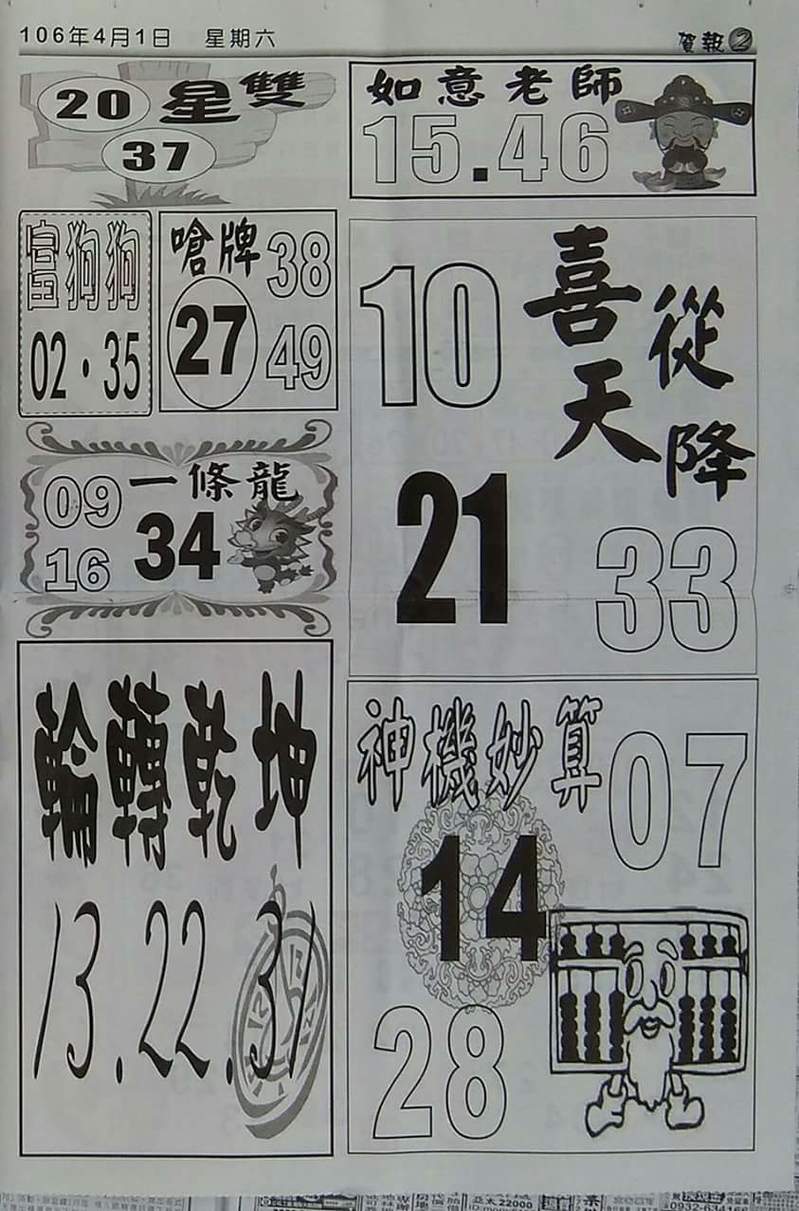 106年4月1日 星期六 賀報2
20 星雙
37
如意老師
15.46
富狗狗
02·35
嗆牌 38
27
49
10 喜從
天降
21
33
09 一條龍
16 34
輪轉乾坤
13.22.31
神機妙算 07
14
28
22000
0932-634168